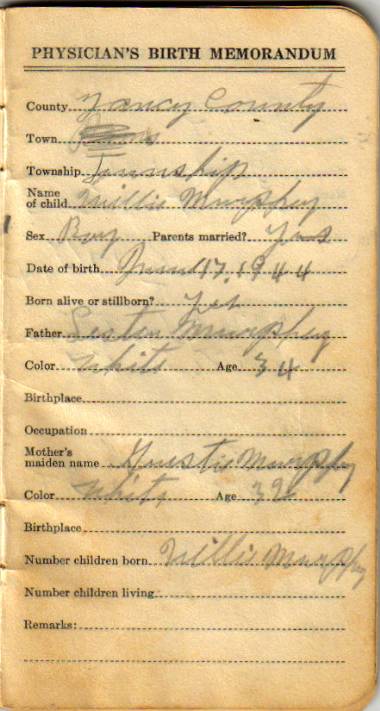 PHYSICIAN'S BIRTH MEMORANDUM
County Yancy County
Town
Township Township
Name of child Willie Murphy
Sex Boy Parents married? Yas
Date of birth 17. 1944
Born alive or stillborn? yes
Father Lester Murphy
Color White Age 34
Birthplace
Occupation
Mother's maiden name Murphy
Color White Age 32
Birthplace
Number children born Willie Murphy
Number children living
Remarks: